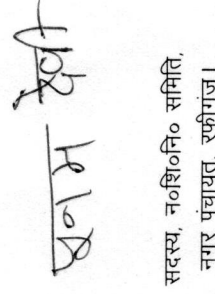 पुनम देवी
सदस्य, न०शि०नि० समिति,
नगर पंचायत, रफीगंज।